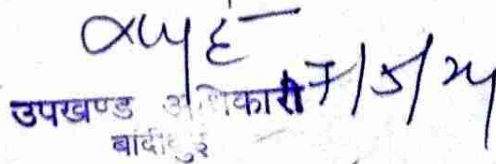 उपखण्ड अधिकारी 7/5/24
बांदीकुई